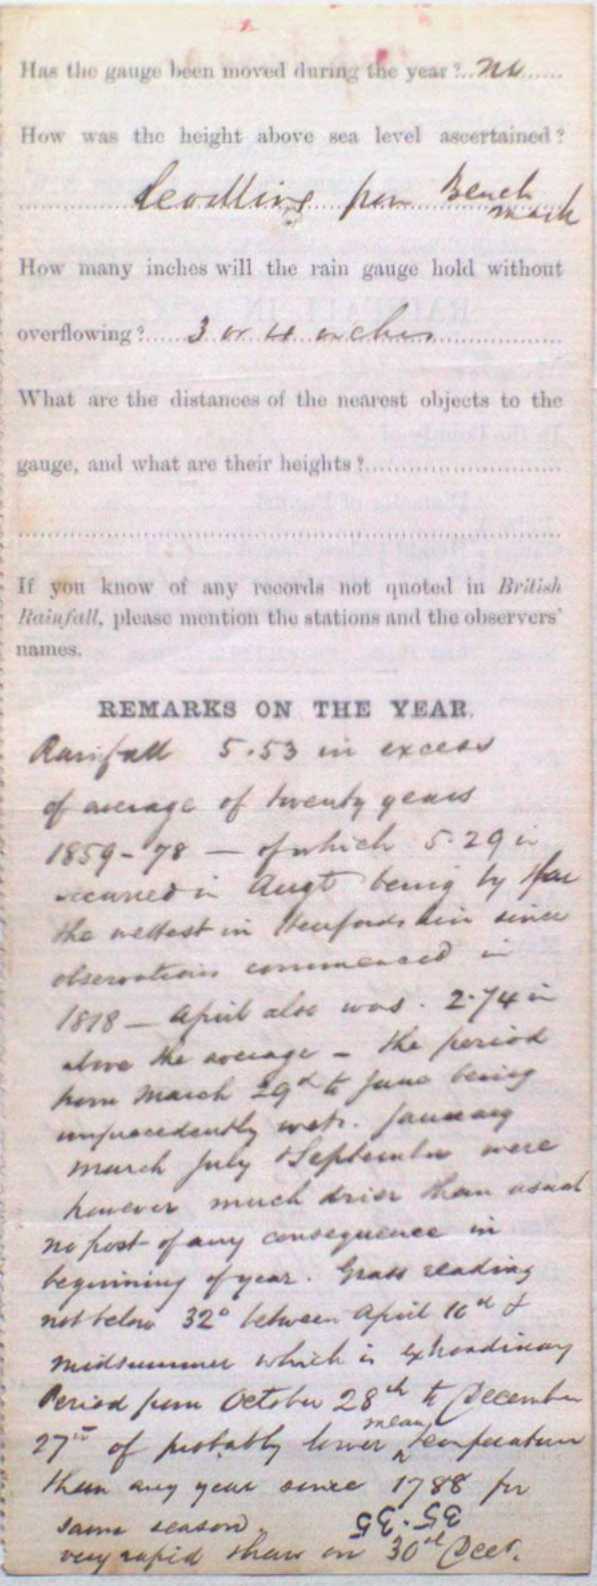 Has the gauge been moved during the year? no
How was the height above sea level ascertained?
Levelling from Bench
mark
How many inches will the rain gauge hold without
overflowing? 3 or 4 inches
What are the distances of the nearest objects to the
gauge, and what are their heights?
If you know of any records not quoted in British
Rainfall, please mention the stations and the observers'
names.
REMARKS ON THE YEAR.
Rainfall 5.53 in excess
of average of twenty years
1859-78 — of which 5.29 in
occurred in Augt being by far
the wettest in Herefordshire since
observations commenced in
1818 — April also was . 2.74 in
above the average - the period
from March 29d to June being
unprecedently wet. January
March July & September were
however much drier than usual
no frost of any consequence in
beginning of year. Grass reading
not below 32° between April 16th &
Midsummer which is extraordinary
Period from October 28th to December
27th of probably lower mean temperature
than any year since 1788 for
same season. 35.35
very rapid thaw on 30th Decr.